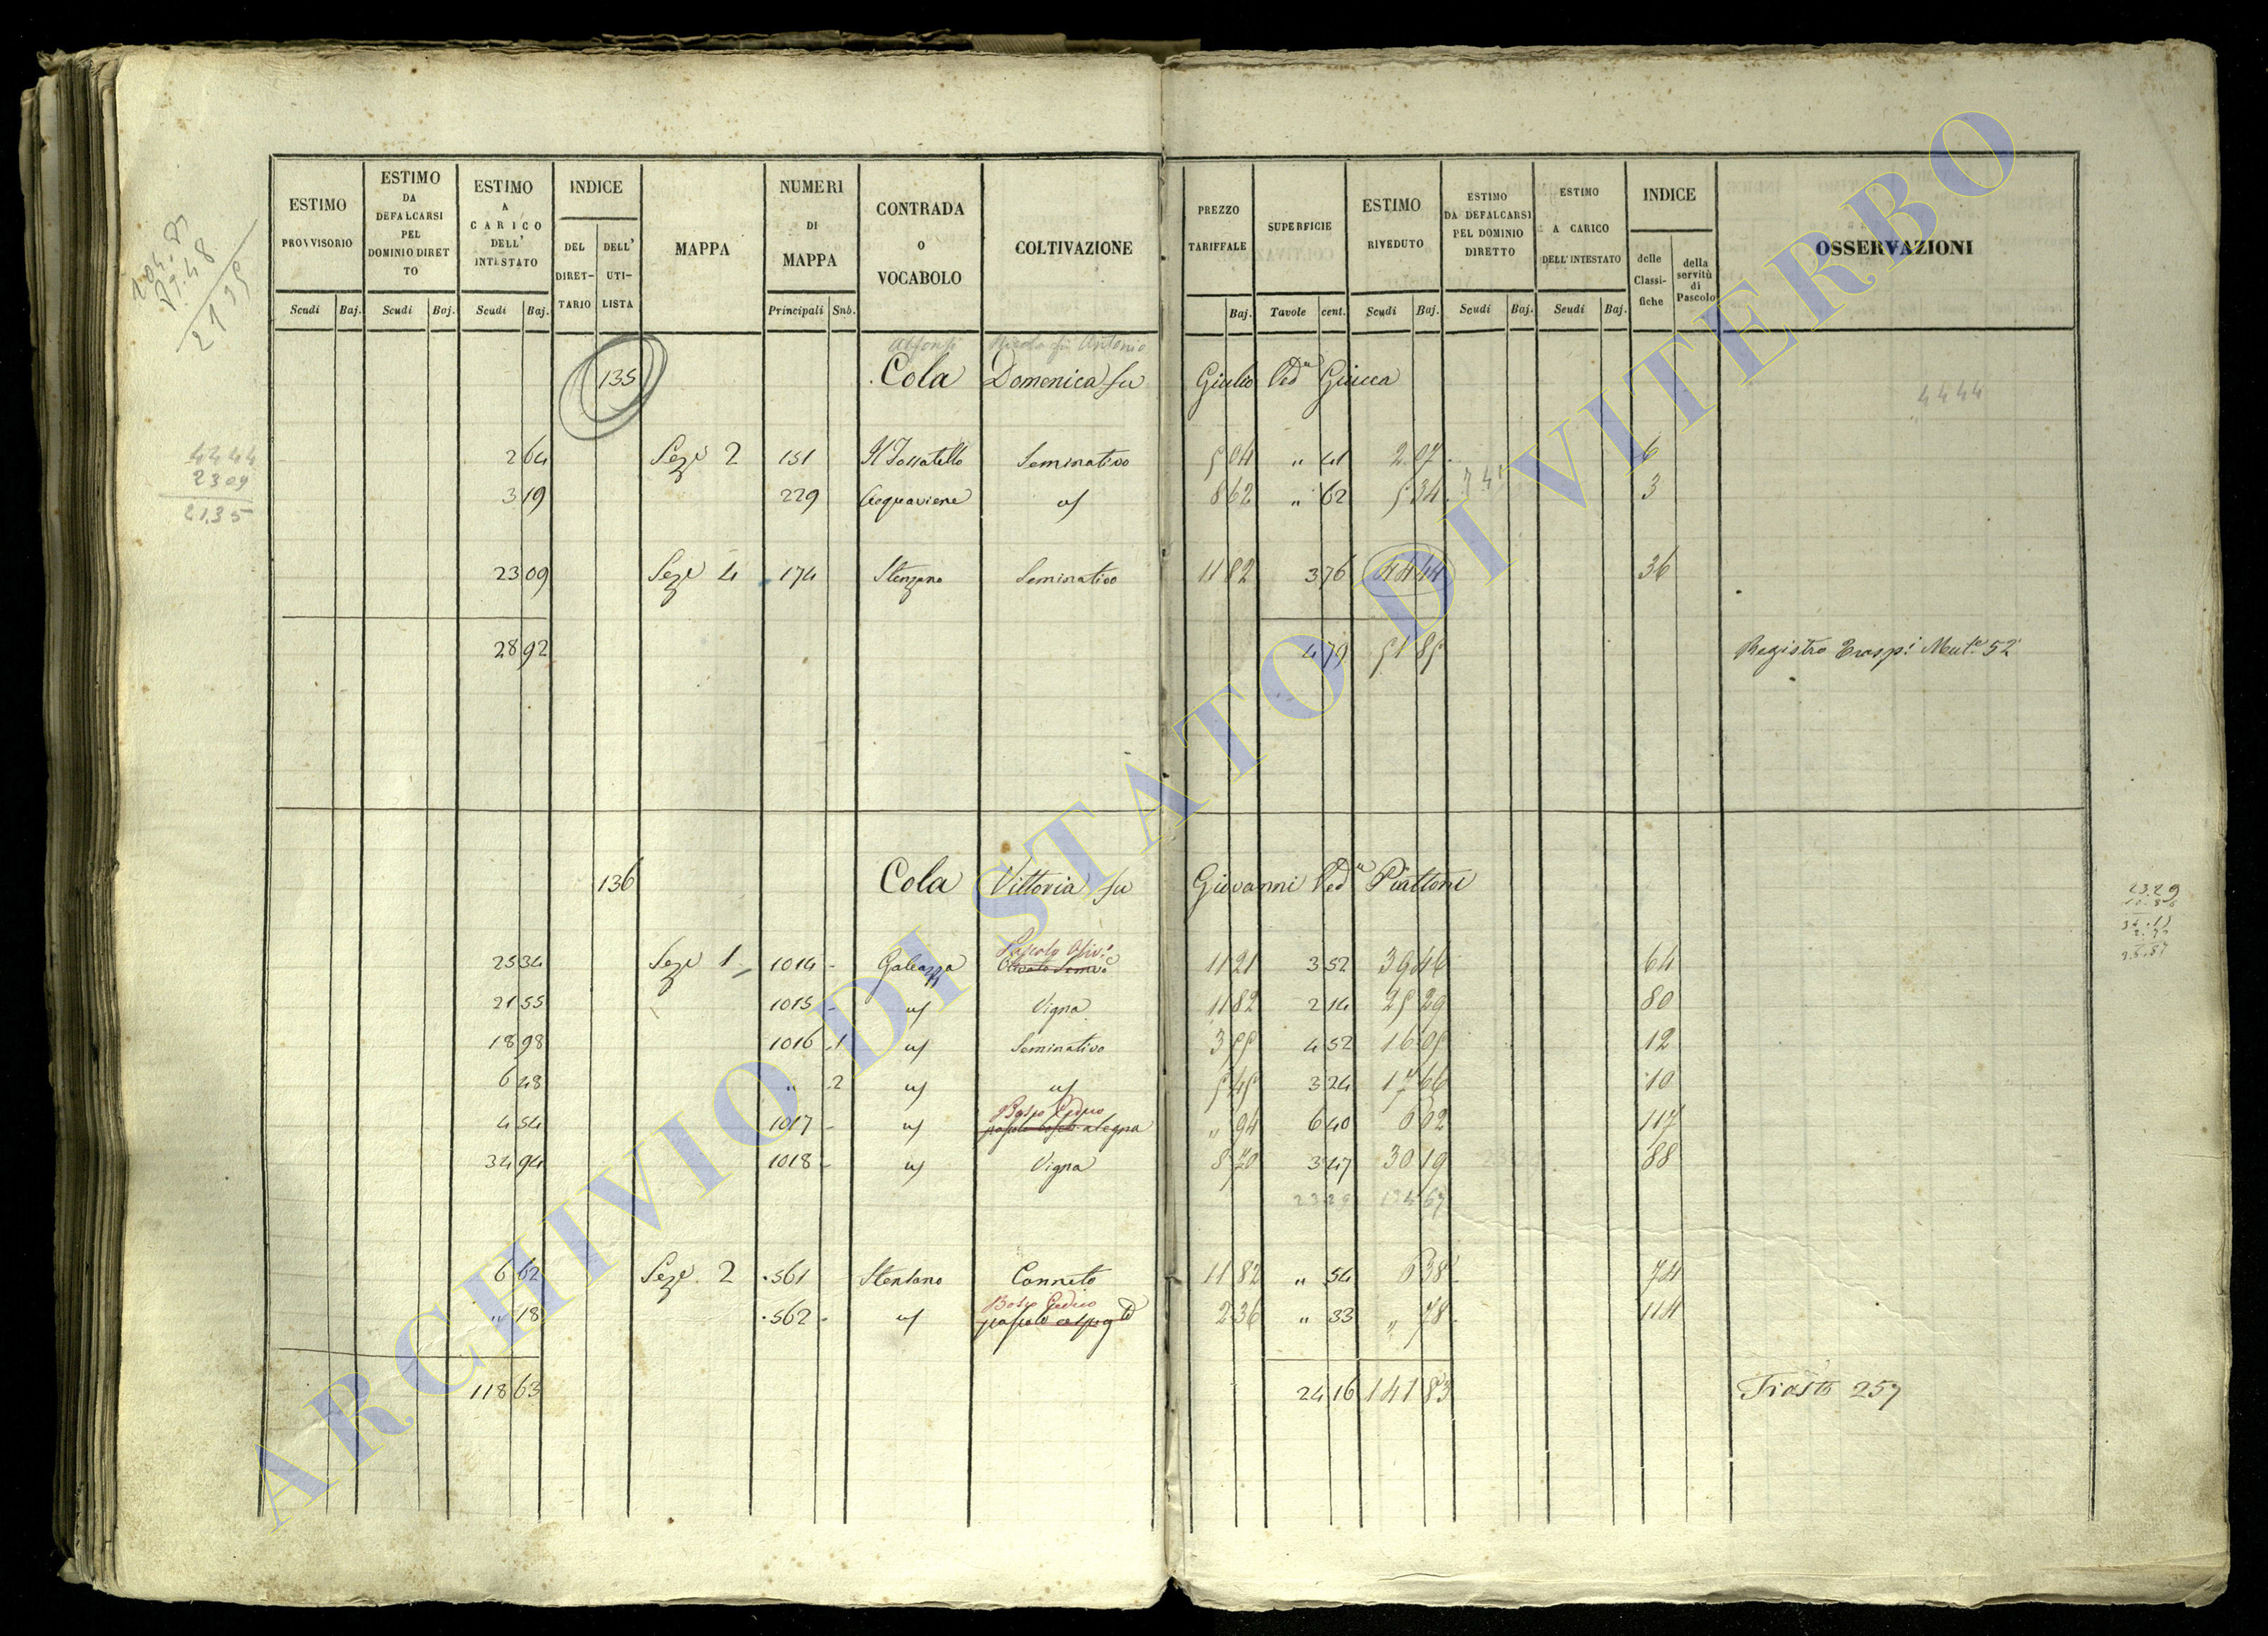 ESTIMO PROVVISORIO Scudi Baj.
ESTIMO DA DEFALCARSI PEL DOMINIO DIRETTO Scudi Baj.
ESTIMO A CARICO DELL' INTESTATO Scudi Baj.
INDICE DEL DIRET-TARIO DELL' UTI-LISTA
MAPPA
NUMERI DI MAPPA Principali Sub.
CONTRADA O VOCABOLO
COLTIVAZIONE
PREZZO TARIFFALE Baj.
SUPERFICIE Tavole cent.
ESTIMO RIVEDUTO Scudi Baj.
ESTIMO DA DEFALCARSI PEL DOMINIO DIRETTO Scudi Baj.
ESTIMO A CARICO DELL'INTESTATO Scudi Baj.
INDICE delle Classi-fiche della servitù di Pascolo
OSSERVAZIONI
Nicola fu Antonio
135 Cola Domenica fu Giulio Ved.a Giucca
4444
4444
2309
2135
2 64 Seze 2 151 Il Fossatello Seminativo 5 04 " 41 2 07 6
3 19 229 Acquaviene uf 8 62 " 62 5 34 3
23 09 Seze 4 174 Stenzano Seminativo 11 82 3 76 44 44 36
28 92 4 79 51 85 Registro Trasp.i Mut.e 52
136 Cola Vittoria fu Giovanni Ved.a Piattoni
Pascolo Oliv.o
25 34 Seze 1 1014 Galeazza Olivato Semivo 11 21 3 52 39 46 64
21 55 1015 uf Vigna 11 82 2 14 25 29 80
18 98 1016 1 uf Seminativo 3 55 4 52 16 05 12
6 48 " 2 uf uf 5 45 3 24 17 66 10
Bosco Ceduo
4 54 1017 uf pascolo cesp. a legna " 94 6 40 6 02 117
34 94 1018 uf Vigna 8 70 3 47 30 19 88
23 29 134 67
6 62 Seze 2 561 Stensano Canneto 11 82 " 54 6 38 74
Bosco Ceduo
" 18 562 uf pascolo cespug.to 2 36 " 33 " 78 114
118 63 24 16 141 83 Trasto 257
ARCHIVIO DI STATO DI VITERBO